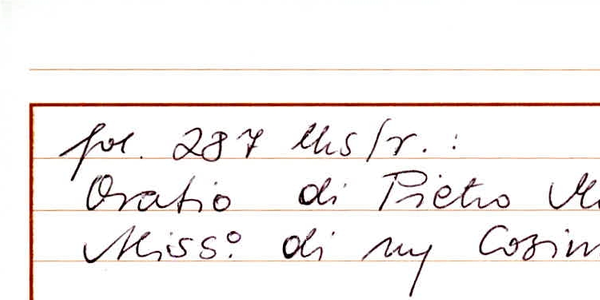 fol. 287 Ms/r. :
Oratio di Pietro
Miss.º di my Cosim